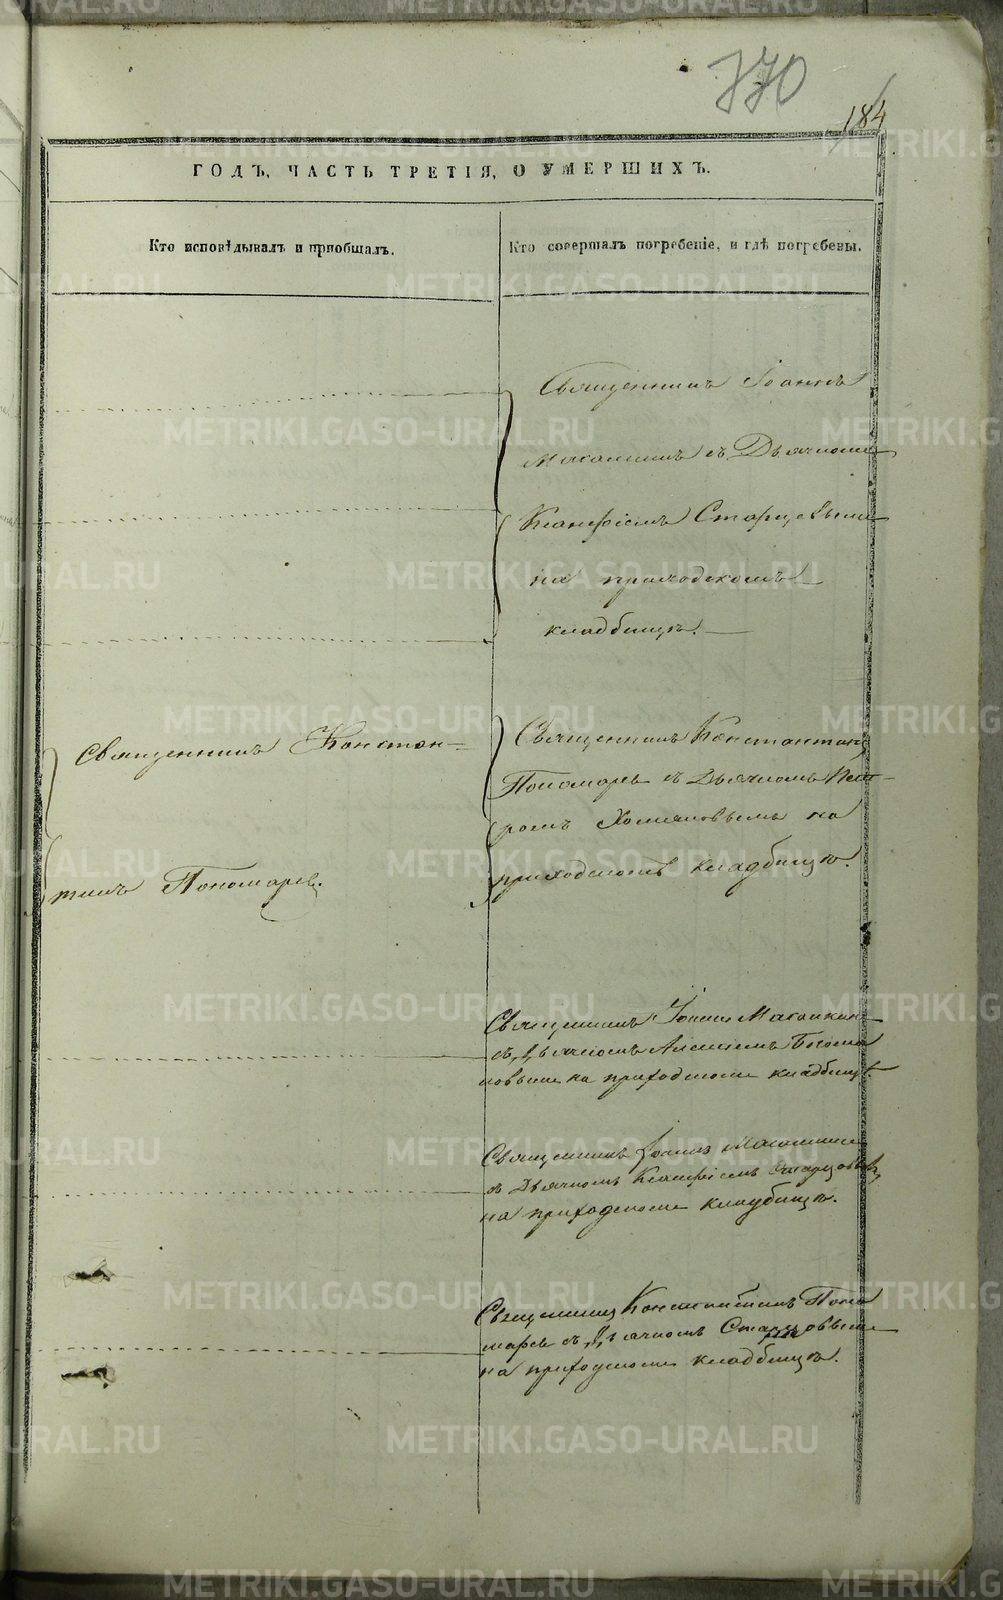 770
184
ГОДЪ, ЧАСТЬ ТРЕТІЯ, О УМЕРШИХЪ.
Кто исповѣдывалъ и пріобщалъ.
Кто совершалъ погребеніе, и гдѣ погребены.
Священникъ Іоаннъ
Макаминъ съ Дьячкомъ
Старцевымъ
на приходскомъ
кладбищѣ.
Священникъ Констан-
тинъ Пономаревъ.
Священникъ Константинъ
Пономаревъ съ Дьячкомъ Пет-
ромъ Хомяковымъ на
приходскомъ кладбищѣ.
Священникъ Іоаннъ
съ Дьячкомъ Алексѣемъ
на приходскомъ кладбищѣ.
Священникъ Іоаннъ
съ Дьячкомъ Старцовымъ
на приходскомъ кладбищѣ.
Священникъ Константинъ Поно
маревъ съ Дьячкомъ Старцовымъ
на приходскомъ кладбищѣ.
METRIKI.GASO-URAL.RU